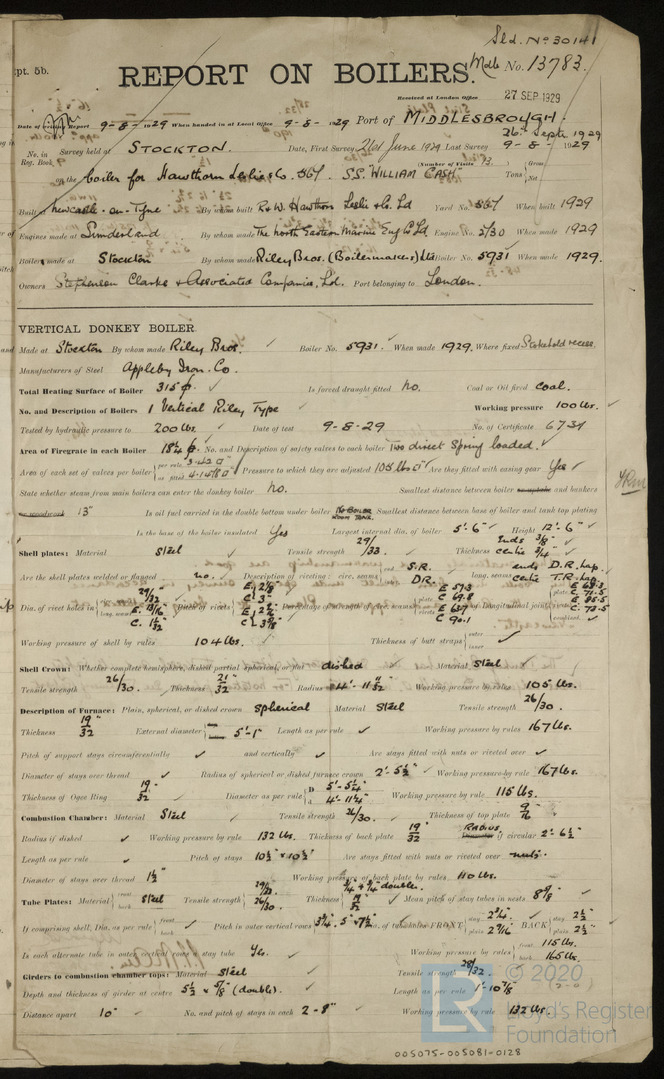 Sld. No 30141
pt. 5b.
REPORT ON BOILERS.
Mdb No. 13783.
Received at London Office 27 SEP 1929
Date of Report 9-8-1929 When handed in at Local Office 9-8-1929 Port of MIDDLESBROUGH.
26th Septr 1929
No. in Reg. Book. Survey held at STOCKTON. Date, First Survey 21st June 1929 Last Survey 9-8-1929
on the boiler for Hawthorn Leslie & Co. 567. S.S. WILLIAM CASH (Number of Visits 13.) Tons Gross Net
Built at Newcastle-on-Tyne By whom built R & W. Hawthorn Leslie & Co. Ld Yard No. 567 When built 1929
Engines made at Sunderland By whom made The North Eastern Marine Eng Co Ld Engine No. 2/30 When made 1929
Boilers made at Stockton By whom made Riley Bros. (Boilermakers) Ltd Boiler No. 5931 When made 1929.
Owners Stephenson Clarke & Associated Companies, Ld. Port belonging to London.
VERTICAL DONKEY BOILER.
Made at Stockton By whom made Riley Bros. Boiler No. 5931. When made 1929. Where fixed Stokehold recess.
Manufacturers of Steel Appleby Iron. Co.
Total Heating Surface of Boiler 315 Is forced draught fitted No. Coal or Oil fired Coal.
No. and Description of Boilers 1 Vertical Riley Type Working pressure 100 lbs.
Tested by hydraulic pressure to 200 lbs. Date of test 9-8-29 No. of Certificate 6731
Area of Firegrate in each Boiler 18¼ No. and Description of safety valves to each boiler Two direct Spring loaded.
Area of each set of valves per boiler per rule 3.42 as fitted Pressure to which they are adjusted 105 lbs Are they fitted with easing gear Yes
State whether steam from main boilers can enter the donkey boiler No. Smallest distance between boiler and bunkers
or woodwork 13" Is oil fuel carried in the double bottom under boiler NO BOILER ROOM TANK. Smallest distance between base of boiler and tank top plating
Is the base of the boiler insulated Yes Largest internal dia. of boiler 5'-6" Height 12'-6"
Shell plates: Material Steel Tensile strength 29/33. Thickness ends 3/8 centre 3/4
Are the shell plates welded or flanged no. Description of riveting: circ. seams end S.R. D.R. long. seams ends D.R. lap. centre T.R. lap.
Dia. of rivet holes in Pitch of rivets Percentage of strength of circ. seams of Longitudinal joint
Working pressure of shell by rules 104 lbs. Thickness of butt straps outer inner
Shell Crown: Whether complete hemisphere, dished partial spherical, or flat dished Material Steel
Tensile strength 26/30. Thickness 21/32" Radius 4'-11 11/32 Working pressure by rules 105 lbs.
Description of Furnace: Plain, spherical, or dished crown Spherical Material Steel Tensile strength 26/30.
Thickness 19/32" External diameter 5'-1" Length as per rule Working pressure by rules 167 lbs.
Pitch of support stays circumferentially and vertically Are stays fitted with nuts or riveted over
Diameter of stays over thread Radius of spherical or dished furnace crown 2'-5½" Working pressure by rule 167 lbs.
Thickness of Ogee Ring 19/32 Diameter as per rule D 5'-5¼" d 4'-11¼" Working pressure by rule 115 lbs.
Combustion Chamber: Material Steel Tensile strength 26/30. Thickness of top plate 9/16"
Radius if dished Working pressure by rule 132 lbs. Thickness of back plate 19/32" RADIUS if circular 2'-6½"
Length as per rule Pitch of stays 10½" x 10½" Are stays fitted with nuts or riveted over nuts.
Diameter of stays over thread 1½" Working pressure of back plate by rules 110 lbs.
Tube Plates: Material front back Steel Tensile strength 29/33 26/30. Thickness ¾ + ¾ double. 19/32 Mean pitch of stay tubes in nests 8 9/8"
If comprising shell, Dia. as per rule front back Pitch in outer vertical rows 3¾. 5" x 7½ Dia. of tube holes FRONT stay 2¾" plain 2 9/16" BACK stay 2½" plain 2½"
Is each alternate tube in outer vertical rows a stay tube Yes. Working pressure by rules front 115 lbs. back 165 lbs.
Girders to combustion chamber tops: Material Steel Tensile strength 28/32.
Depth and thickness of girder at centre 5½ x 5/8" (double). Length as per rule 1'-10 7/8"
Distance apart 10" No. and pitch of stays in each 2-8" Working pressure by rule 132 lbs.
© 2020
Lloyd's Register
Foundation
005075-005081-0128